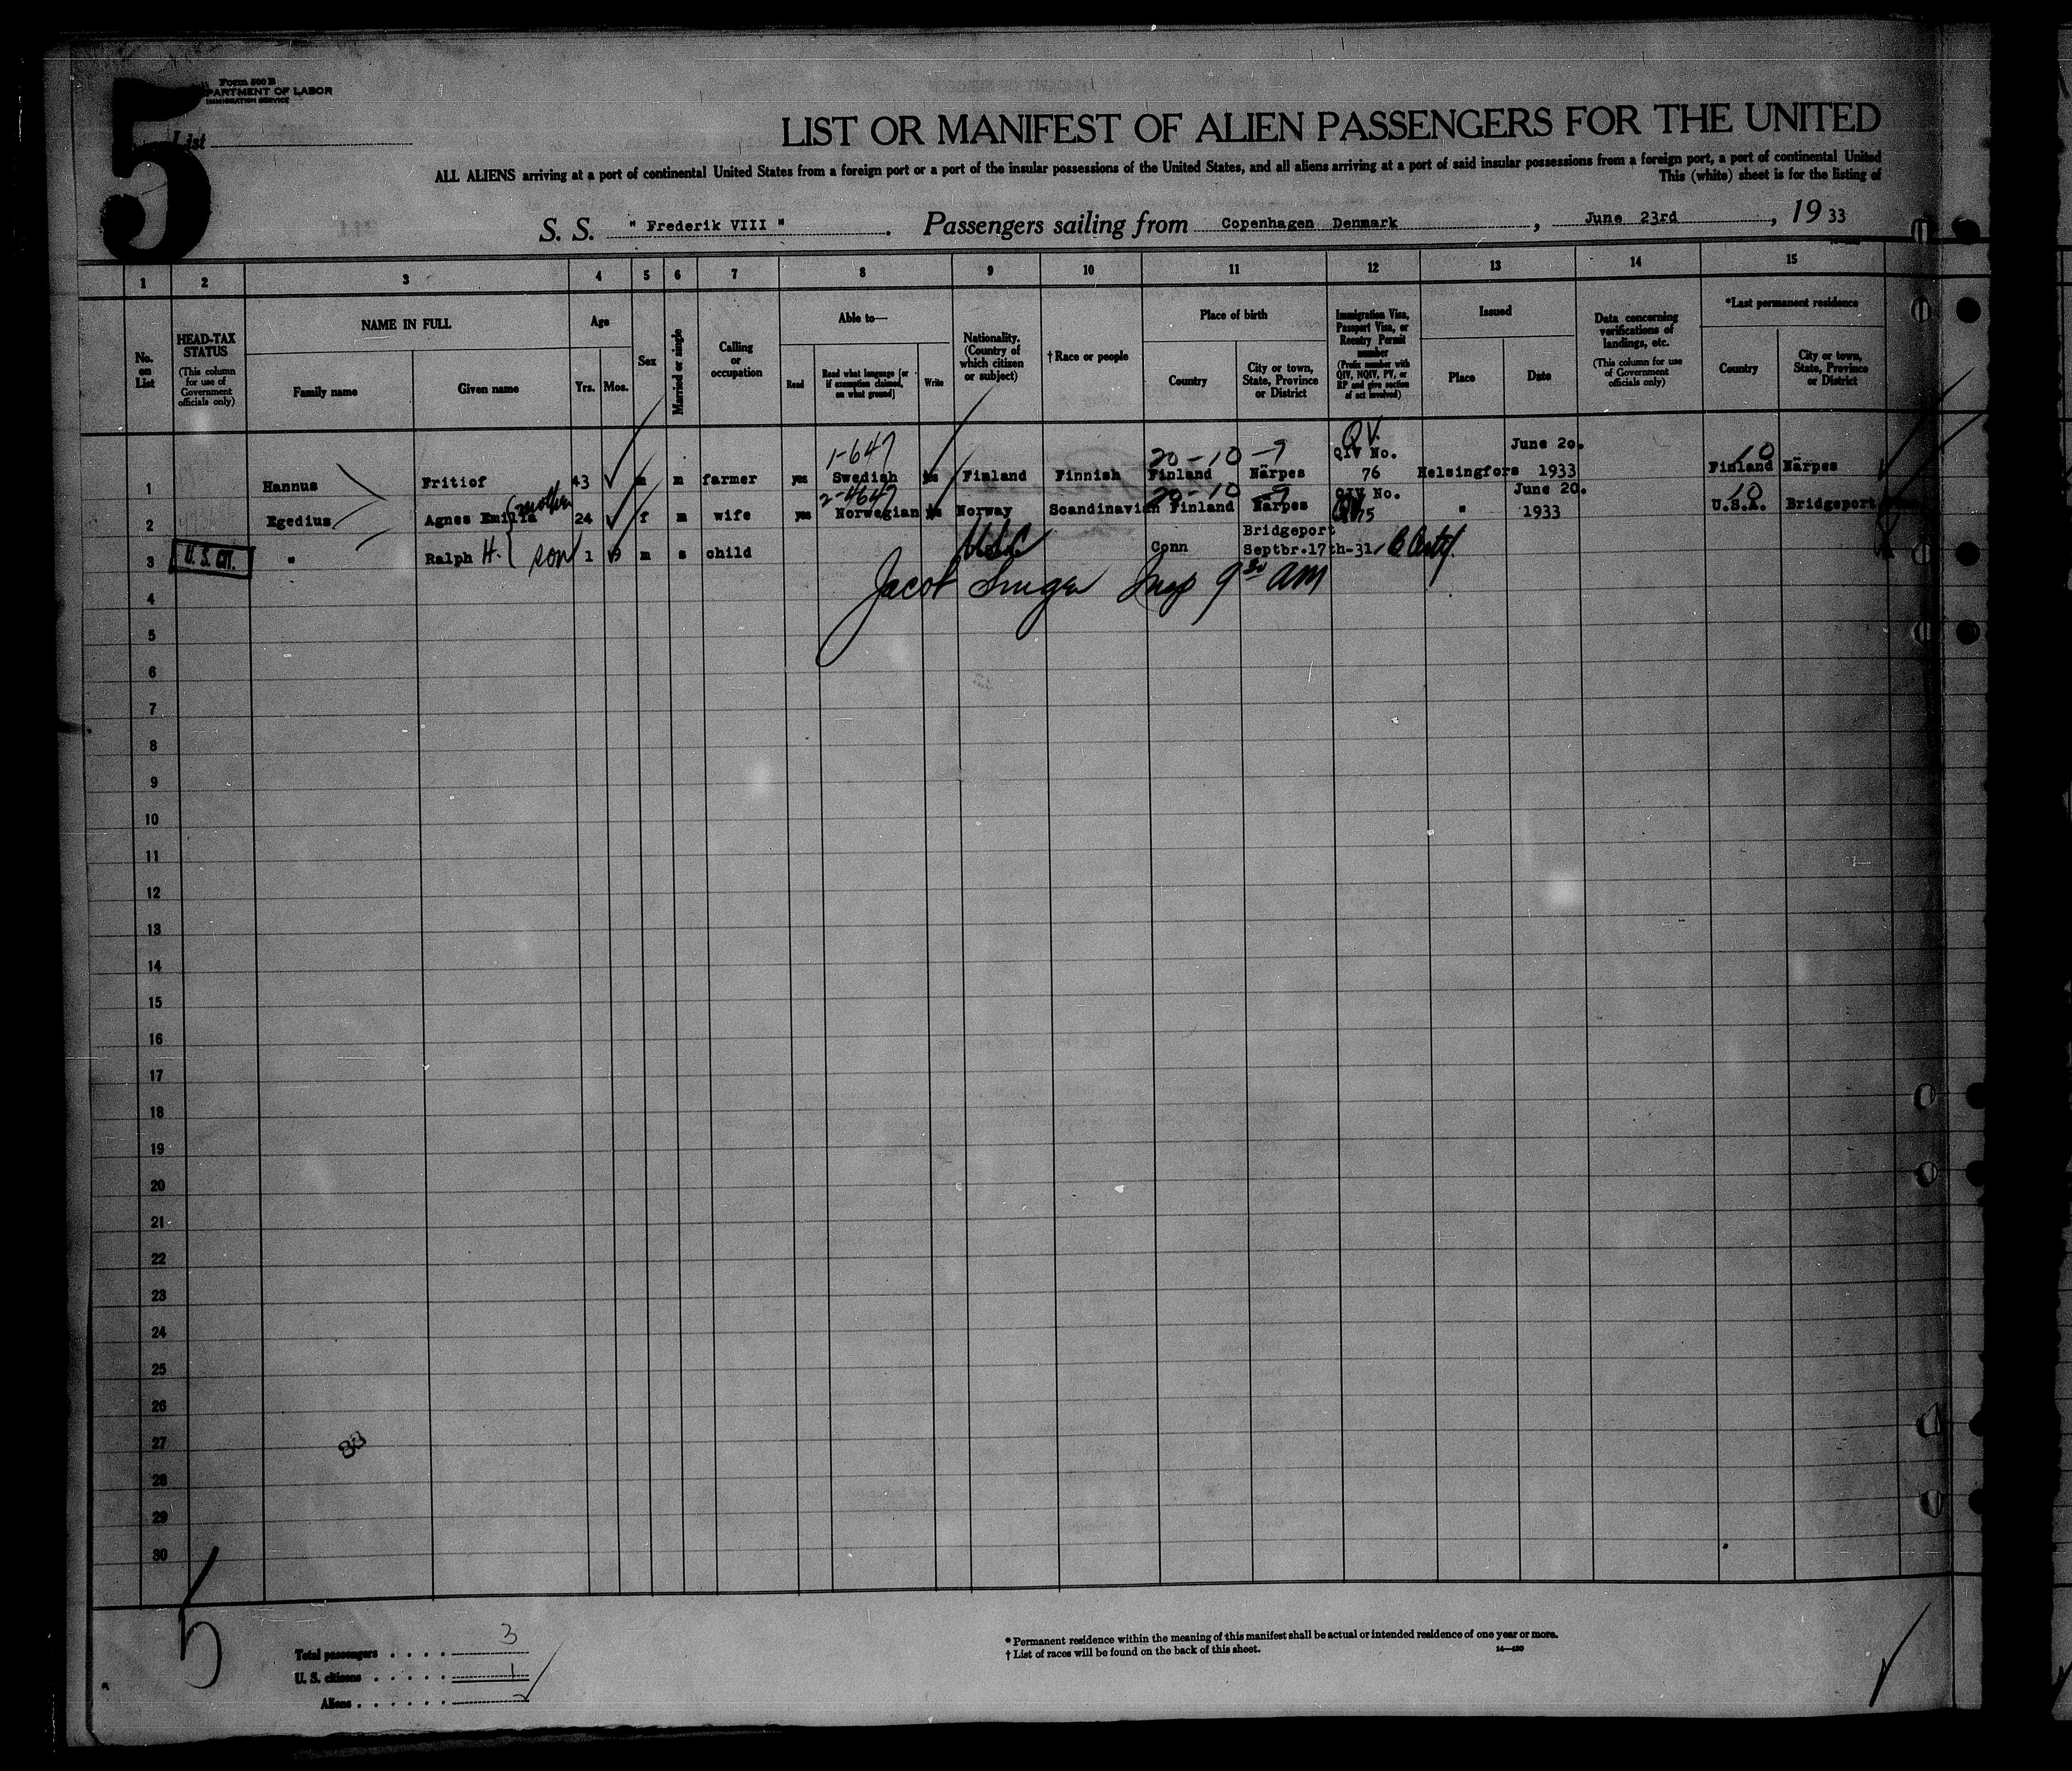 5
Form 500 B
DEPARTMENT OF LABOR
IMMIGRATION SERVICE
List
LIST OR MANIFEST OF ALIEN PASSENGERS FOR THE UNITED
ALL ALIENS arriving at a port of continental United States from a foreign port or a port of the insular possessions of the United States, and all aliens arriving at a port of said insular possessions from a foreign port, a port of continental United
This (white) sheet is for the listing of
S. S. " Frederik VIII " . Passengers sailing from Copenhagen Denmark , June 23rd , 19 33
1 2 3 4 5 6 7 8 9 10 11 12 13 14 15
No. on List
HEAD-TAX STATUS (This column for use of Government officials only)
NAME IN FULL
Family name
Given name
Age
Yrs.
Mos.
Sex
Married or single
Calling or occupation
Able to—
Read
Read what language [or if exemption claimed, on what ground]
Write
Nationality. (Country of which citizen or subject)
† Race or people
Place of birth
Country
City or town, State, Province or District
Immigration Visa, Passport Visa, or Reentry Permit number (Prefix number with QIV, NQIV, PV, or RP and give section of act involved)
Issued
Place
Date
Data concerning verifications of landings, etc. (This column for use of Government officials only)
*Last permanent residence
Country
City or town, State, Province or District
1-647 20-10-7 QV. QIV No. June 20. 10
1 Hannus Fritiof 43 m m farmer yes Swedish yes Finland Finnish Finland Närpes 76 Helsingfors 1933 Finland Närpes
(mother 2-4647 20-10-7 QIV No. June 20. 10
2 Egedius Agnes Emilia 24 f m wife yes Norwegian yes Norway Scandinavian Finland Närpes 75 " 1933 U.S.A. Bridgeport
Bridgeport
3 U. S. CIT. " Ralph H. { son 1 9 m s child Conn Septbr.17th-31,
Jacob 9 30 am
4
5
6
7
8
9
10
11
12
13
14
15
16
17
18
19
20
21
22
23
24
25
26
27
28
29
30
83
5
Total passengers . . . . 3
U. S. citizens . . . . . 1
Aliens . . . . . .
* Permanent residence within the meaning of this manifest shall be actual or intended residence of one year or more.
† List of races will be found on the back of this sheet.
14—430